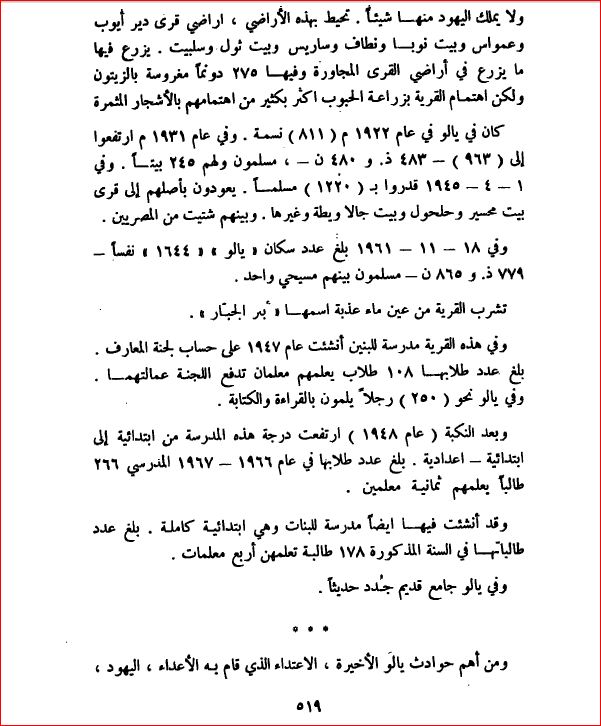 ولا يملك اليهود منها شيئاً . تحيط بهذه الأراضي ، اراضي قرى دير أيوب
وعمواس وبيت نوبا ونطاف وساريس وبيت ثول وسلبيت . يزرع فيها
ما يزرع في أراضي القرى المجاورة وفيها ٢٧٥ دونماً مغروسة بالزيتون
ولكن اهتمام القرية بزراعة الحبوب اكثر بكثير من اهتمامهم بالأشجار المثمرة
كان في يالو في عام ١٩٢٢ م ( ٨١١ ) نسمة . وفي عام ١٩٣١ م ارتفعوا
إلى ( ٩٦٣ ) – ٤٨٣ ذ. و ٤٨٠ ن – ، مسلمون ولهم ٢٤٥ بيتاً . وفي
١ – ٤ – ١٩٤٥ قدروا بـ ( ١٢٢٠ ) مسلماً . يعودون بأصلهم إلى قرى
بيت محسير وحلحول وبيت جالا ويطة وغيرها . وبينهم شتيت من المصريين .
وفي ١٨ – ١١ – ١٩٦١ بلغ عدد سكان « يالو » « ١٦٤٤ » نفساً –
٧٧٩ ذ. و ٨٦٥ ن – مسلمون بينهم مسيحي واحد .
تشرب القرية من عين ماء عذبة اسمها « بئر الجبّار » .
وفي هذه القرية مدرسة للبنين أنشئت عام ١٩٤٧ على حساب لجنة المعارف .
بلغ عدد طلابها ١٠٨ طلاب يعلمهم معلمان تدفع اللجنة عمالتهما .
وفي يالو نحو ( ٢٥٠ ) رجلاً يلمون بالقراءة والكتابة .
وبعد النكبة ( عام ١٩٤٨ ) ارتفعت درجة هذه المدرسة من ابتدائية إلى
ابتدائية – اعدادية . بلغ عدد طلابها في عام ١٩٦٦ – ١٩٦٧ المدرسي ٢٦٦
طالباً يعلمهم ثمانية معلمين .
وقد أنشئت فيها ايضاً مدرسة للبنات وهي ابتدائية كاملة . بلغ عدد
طالباتها في السنة المذكورة ١٧٨ طالبة تعلمهن أربع معلمات .
وفي يالو جامع قديم جُدد حديثاً .
* * *
ومن أهم حوادث يالو الأخيرة ، الاعتداء الذي قام به الأعداء ، اليهود ،
٥١٩